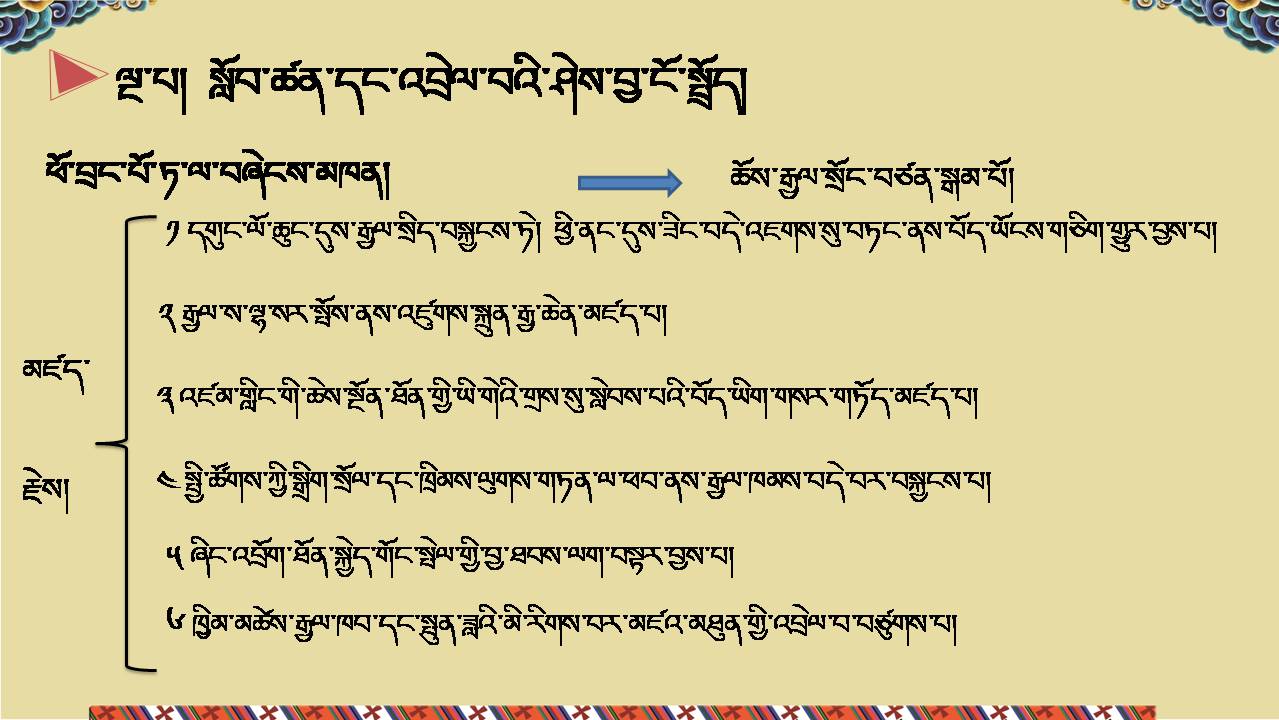 ལྔ་པ། སློབ་ཚན་དང་འབྲེལ་བའི་ཤེས་བྱ་ངོ་སྤྲོད།
ཕོ་བྲང་པོ་ཏ་ལ་བཞེངས་མཁན།
ཆོས་རྒྱལ་སྲོང་བཙན་སྒམ་པོ།
༡ དགུང་ལོ་ཆུང་དུས་རྒྱལ་སྲིད་བསྐྱངས་ཏེ། ཕྱི་ནང་དུས་ཟིང་བདེ་འཇགས་སུ་བཏང་ནས་པོད་ཡོངས་གཅིག་གྱུར་བྱས་པ།
༢ རྒྱལ་ས་ལྷ་སར་སྤོས་ནས་འཛུགས་སྐྲུན་རྒྱ་ཆེན་མཛད་པ།
མཛད་
༣ འཛམ་གླིང་གི་ཆེས་སྔོན་ཐོན་གྱི་ཡི་གེའི་གྲས་སུ་སླེབས་པའི་པོད་ཡིག་གསར་གཏོད་མཛད་པ།
༤ སྤྱི་ཚོགས་ཀྱི་སྒྲིག་སྲོལ་དང་ཁྲིམས་ལུགས་གཏན་ལ་ཕབ་ནས་རྒྱལ་ཁམས་བདེ་བར་བསྐྱངས་པ།
རྗེས།
༥ ཞིང་འབྲོག་ཐོན་སྐྱེད་གོང་སྤེལ་གྱི་བྱ་ཐབས་ལག་བསྟར་བྱས་པ།
༦ ཁྱིམ་མཚེས་རྒྱལ་ཁབ་དང་སྤུན་ཟླའི་མི་རིགས་བར་མཛའ་མཐུན་གྱི་འབྲེལ་བ་བཙུགས་པ།